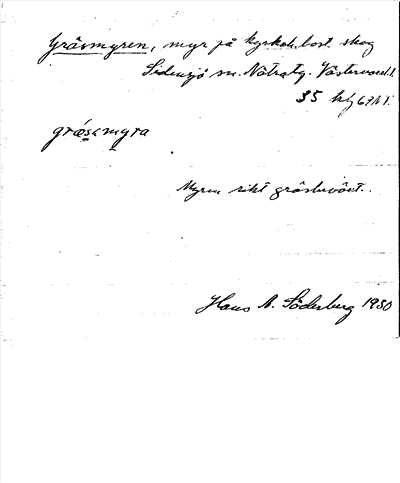 Gräsmyren, myr på kyrkoh.bost. skog
Sidensjö sn. Nätratg. Västernorrl.
35
gräsamyra
Myren rikt gräsbevöxt.
Hans A. Söderberg 1930